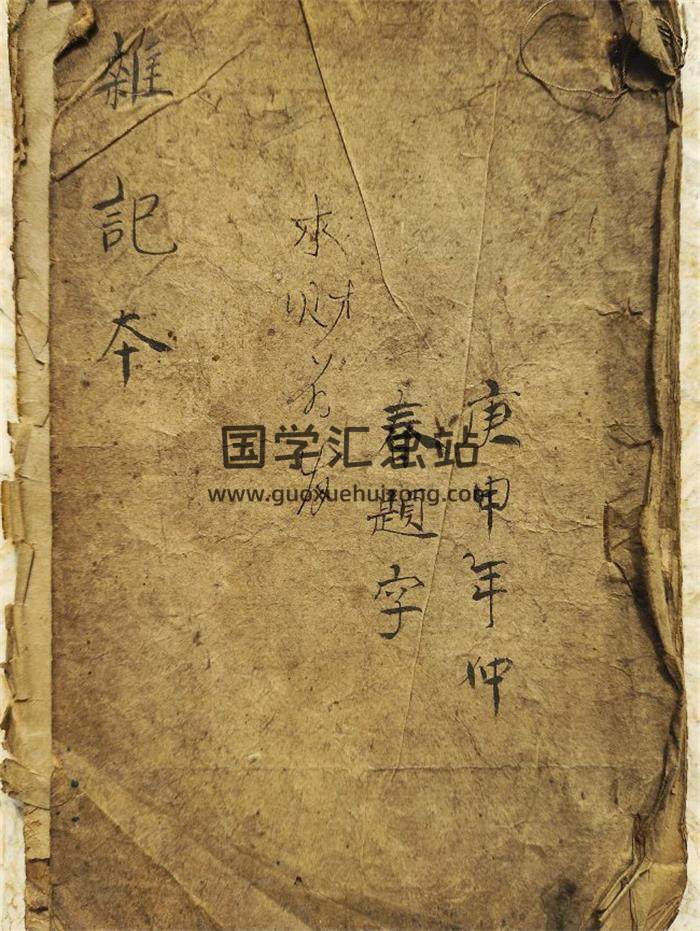 庚申年仲
春題字
求财
雜記本
国学汇总站
www.guoxuehuizong.com